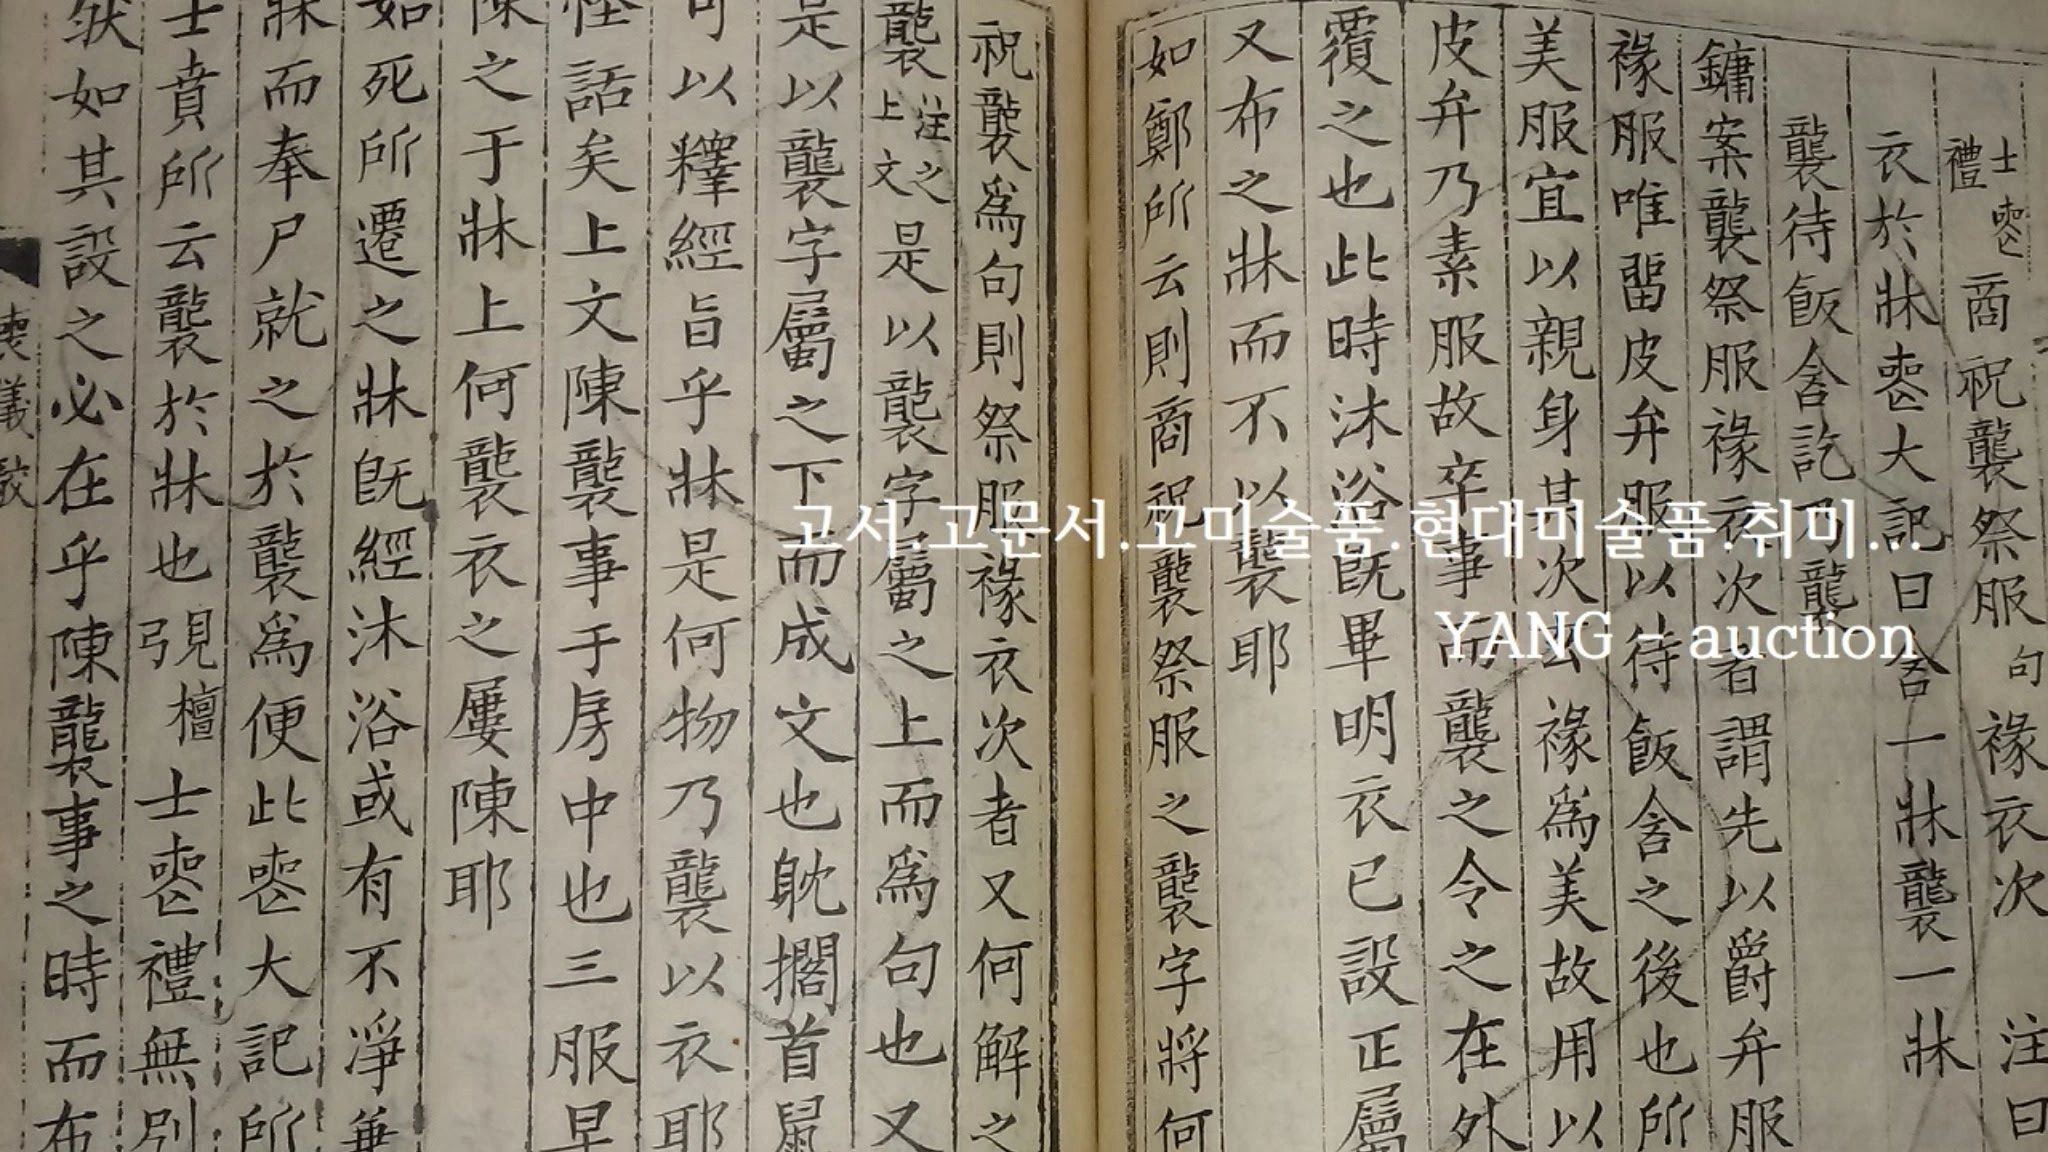 士喪禮 商祝襲祭服句 褖衣次 注曰
衣於牀喪大記曰含一牀襲一牀
襲待飯含訖乃襲
鏞案襲祭服褖衣次者謂先以爵弁服
褖服唯留皮弁服以待飯含之後也所
美服宜以親身其次玄褖為美故用以
皮弁乃素服故卒事而襲之令之在外
覆之也此時沐浴旣畢明衣已設正屬
又布之牀而不以襲耶
如鄭所云則商祝襲祭服之襲字將何
祝襲爲句則祭服褖衣次者又何解之
襲注之上文之是以襲字屬之上而爲句也又
是以襲字屬之下而成文也耽擱首鼠
可以釋經旨乎牀是何物乃襲以衣耶
怪話矣上文陳襲事于房中也三服早
陳之于牀上何襲衣之屢陳耶
如死所遷之牀旣經沐浴或有不淨兼
牀而奉尸就之於襲爲便此喪大記所
士賁所云襲於牀也見檀弓士喪禮無別
然如其設之必在乎陳襲事之時而布
喪儀
고서.고문서.고미술품.현대미술품.취미...
YANG - auction